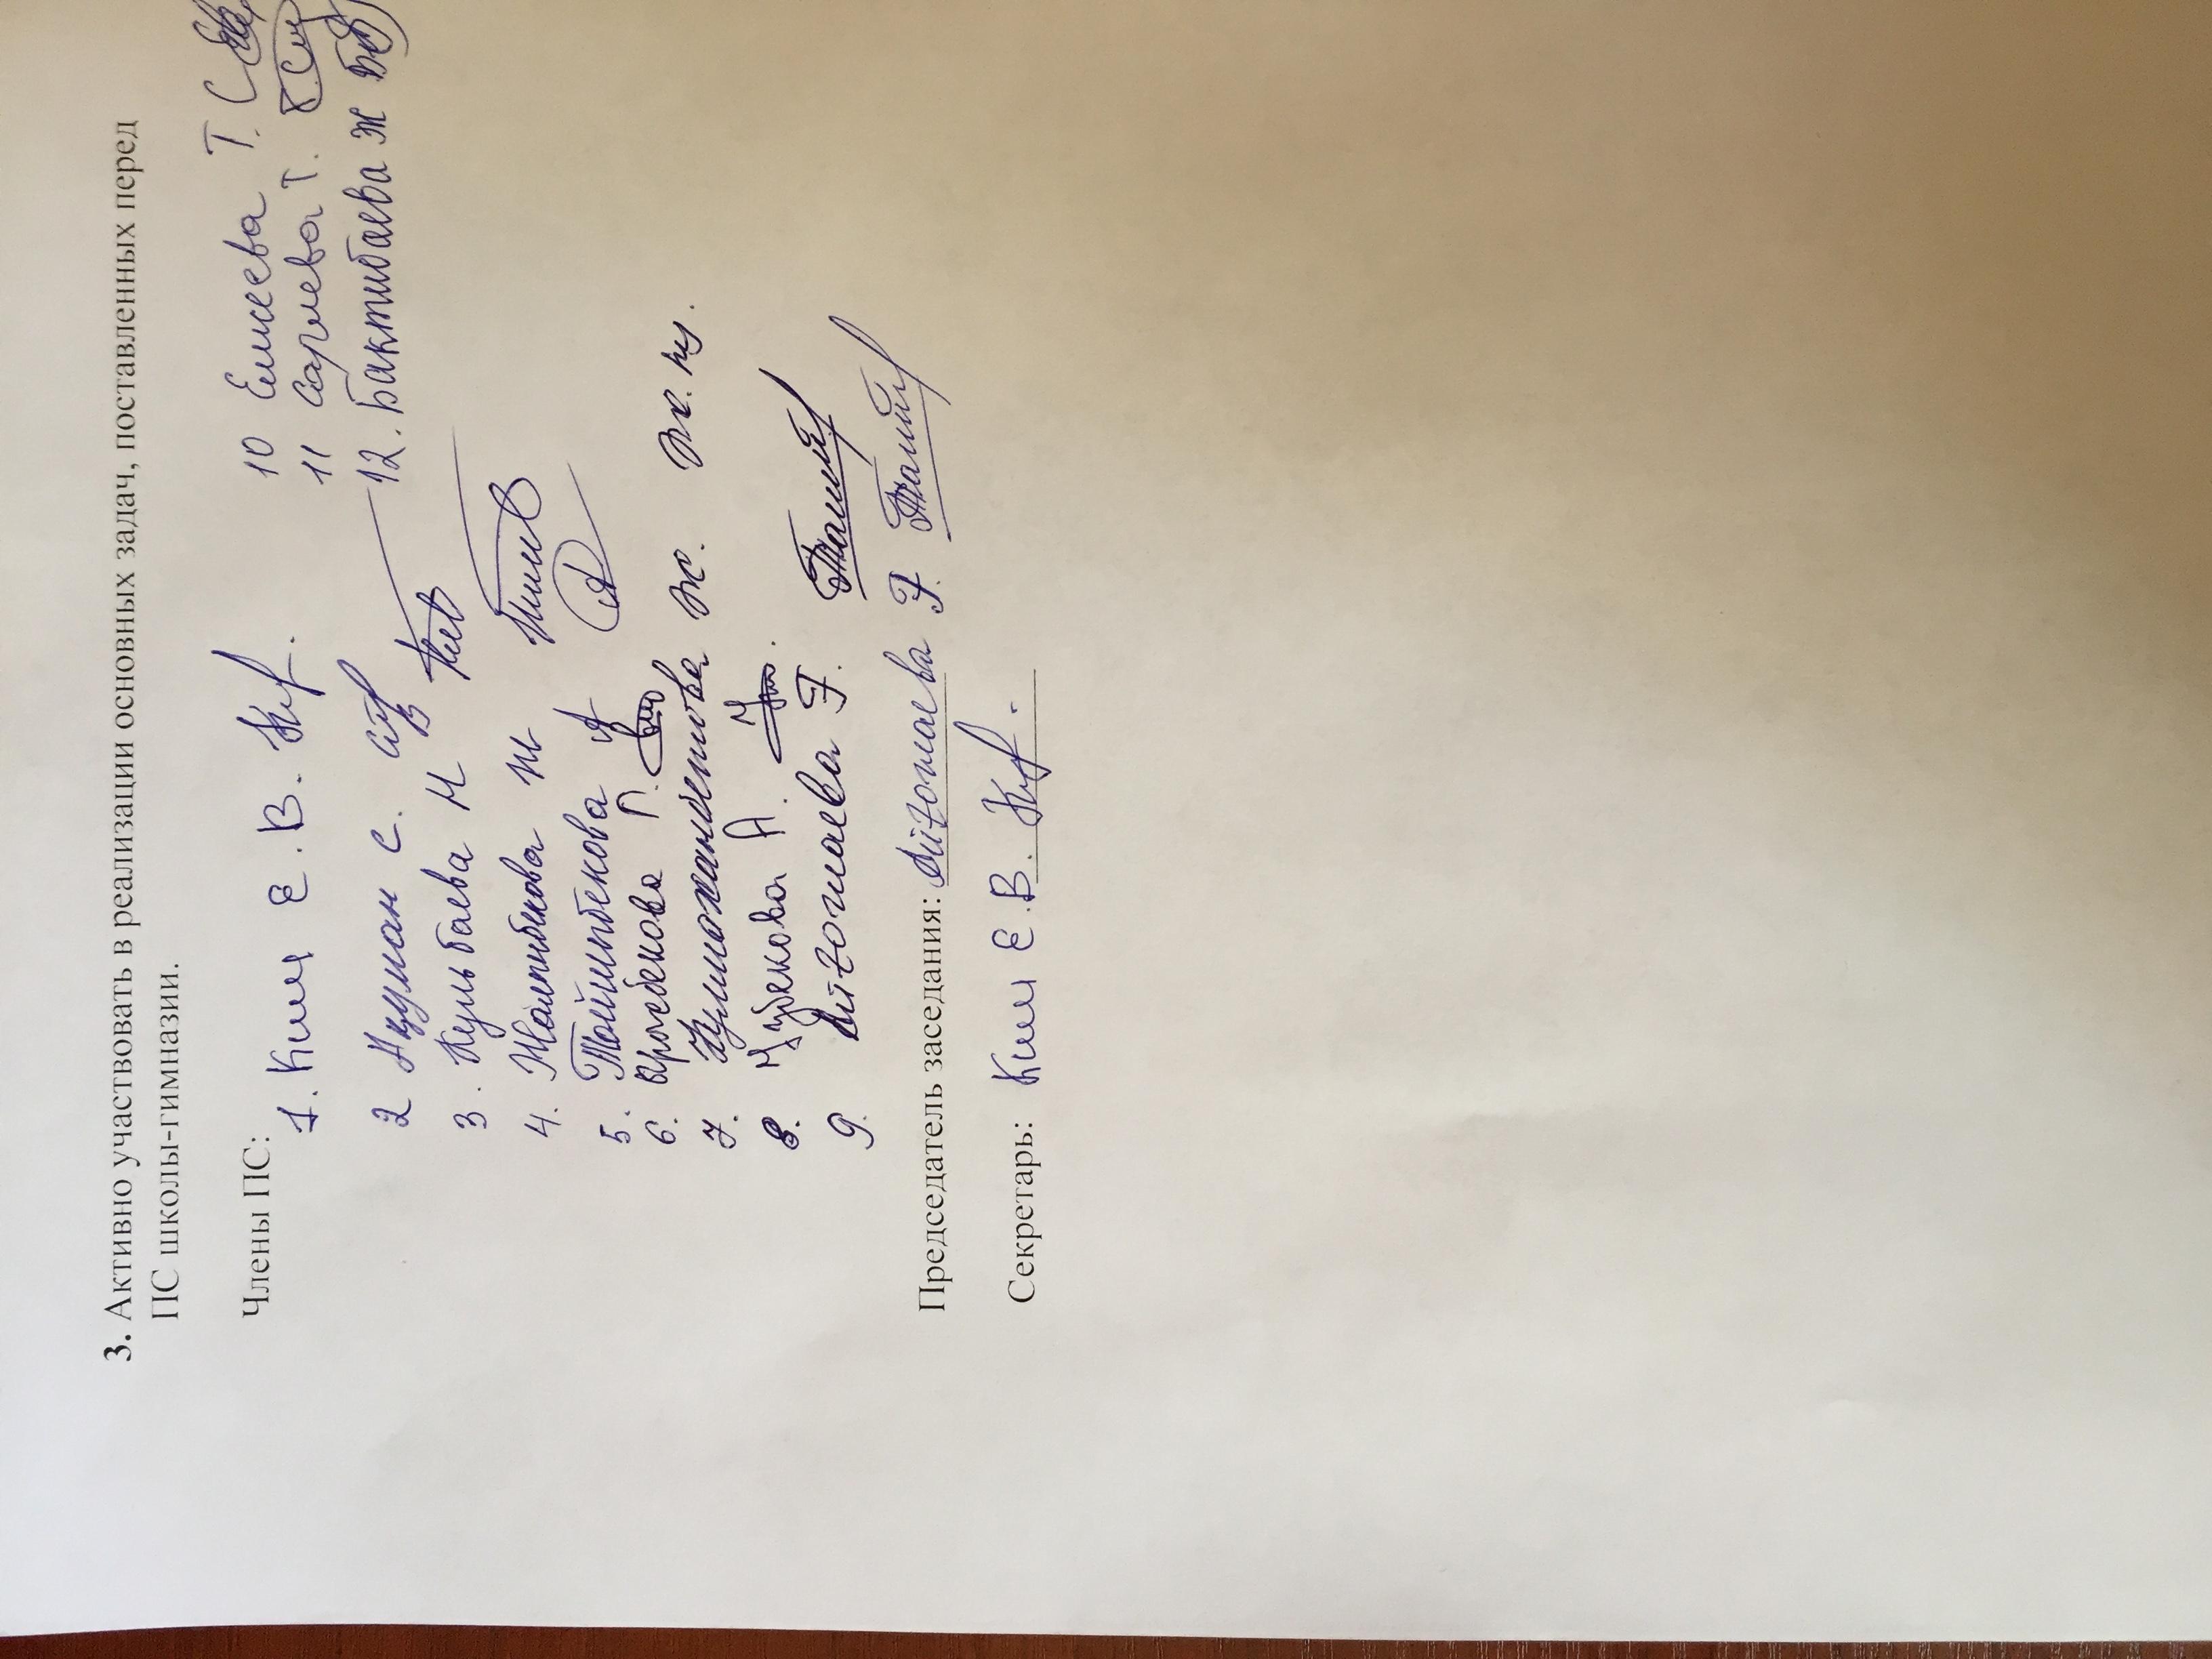 3. Активно участвовать в реализации основных задач, поставленных перед
ПС школы-гимназии.
Члены ПС:
1. Ким Е.В.
2 Науман С.
3. Кульбаева Н
4. Жампибекова
5. Тойшыбекова А
6. Г.
7. Кулмаханбетова Ж.
8. А.
9. Айтомаева Г.
10 Елисеева Т.С
11 Сариева Т.
12. Бактыбаева Ж
Председатель заседания: Айтомаева Г.
Секретарь: Ким Е.В.